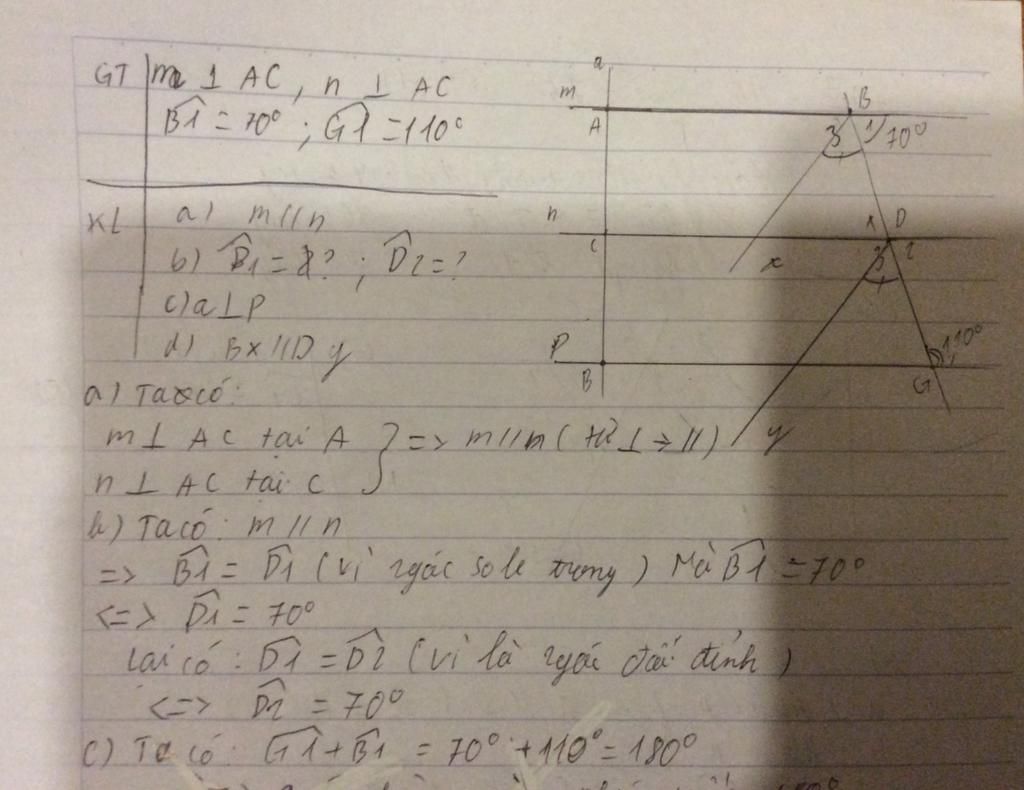 GT m ⊥ AC, n ⊥ AC
B̂1 = 70° ; Ĝ1 = 110°
KL a) m // n
b) D̂1 = ? ; D̂2 = ?
c) a ⊥ P
d) Bx // Dy
a
m
A
B
3 1 70°
n
C
x
1 D
3 2
P
B
110°
G
y
a) Ta có:
m ⊥ AC tại A } => m // n (từ ⊥ → //)
n ⊥ AC tại C
b) Ta có: m // n
=> B̂1 = D̂1 (vì 2 góc so le trong) Mà B̂1 = 70°
<=> D̂1 = 70°
Lại có: D̂1 = D̂2 (vì là 2 góc đối đỉnh)
<=> D̂2 = 70°
c) Ta có: Ĝ1 + B̂1 = 70° + 110° = 180°